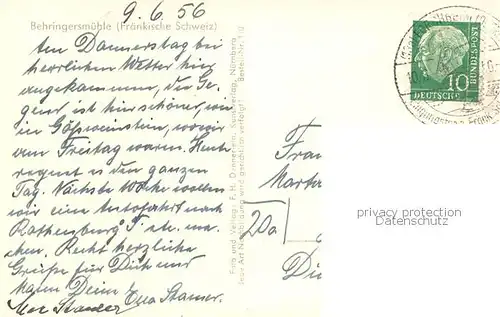 9. 6. 56
Behringersmühle (Fränkische Schweiz)
Am Donnerstag bei
herrlichem Wetter hier
angekommen, die Ge-
gend ist hier schöner, wie
in Gößweinstein, wo wir
am Freitag waren. Heute
regnet es den ganzen
Tag. Nächste Woche wollen
wir eine Autofahrt nach
Rothenburg o/T. etc. ma-
chen. Recht herzliche
Grüße für Dich und
Mann Deine Eva Stamer.
Foto und Verlag: F. H. Dinnerlein, Kunstverlag, Nürnberg
Jede Art Nachbildung wird gerichtlich verfolgt! Bestell-Nr.
10
DEUTSCHE
BUNDESPOST
Frau
20a
privacy protection
Datenschutz